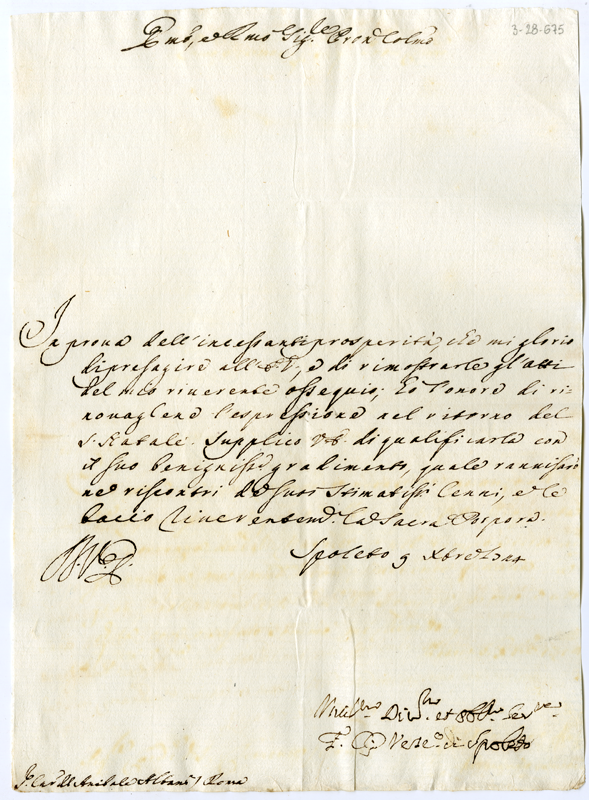 3-28-675
Em̃o, e Rmo Sig.re Pron Colmo
In prova dell'incessanti prosperità che mi glorio
di presagire all'E.V., e di rimostrarle gl'atti
del mio riverente ossequio; Hò l'onore di ri-
novaglene l'espressione nel ritorno del
S. Natale. Supplico V.E. di qualificarle con
il suo benignis.o gradimento, quale ravviserò
ne riscontri de suoi stimatis.i cenni, e le
baccio riverentem.e la Sacra Porpora.
Spoleto 9 Xbre
Div.mo et Obb.mo Ser.re
F. Vesc.o di Spoleto
S.r Card.l Anibale Albani / Roma